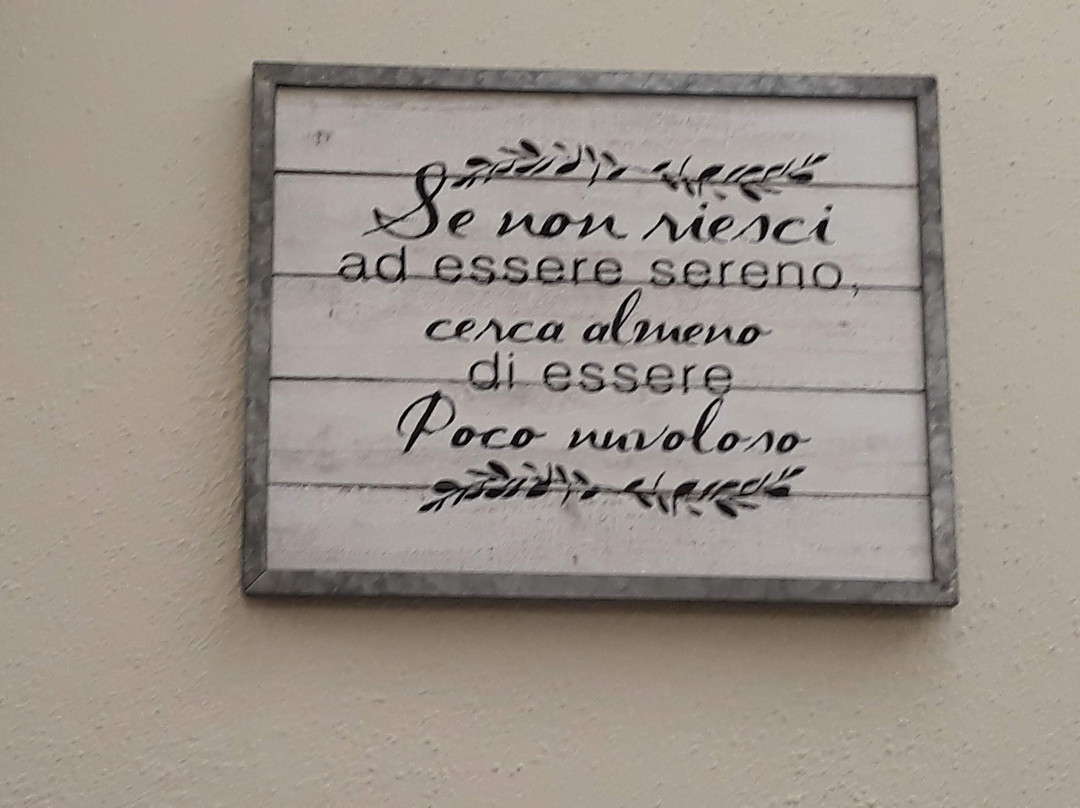 Se non riesci
ad essere sereno,
cerca almeno
di essere
Poco nuvoloso